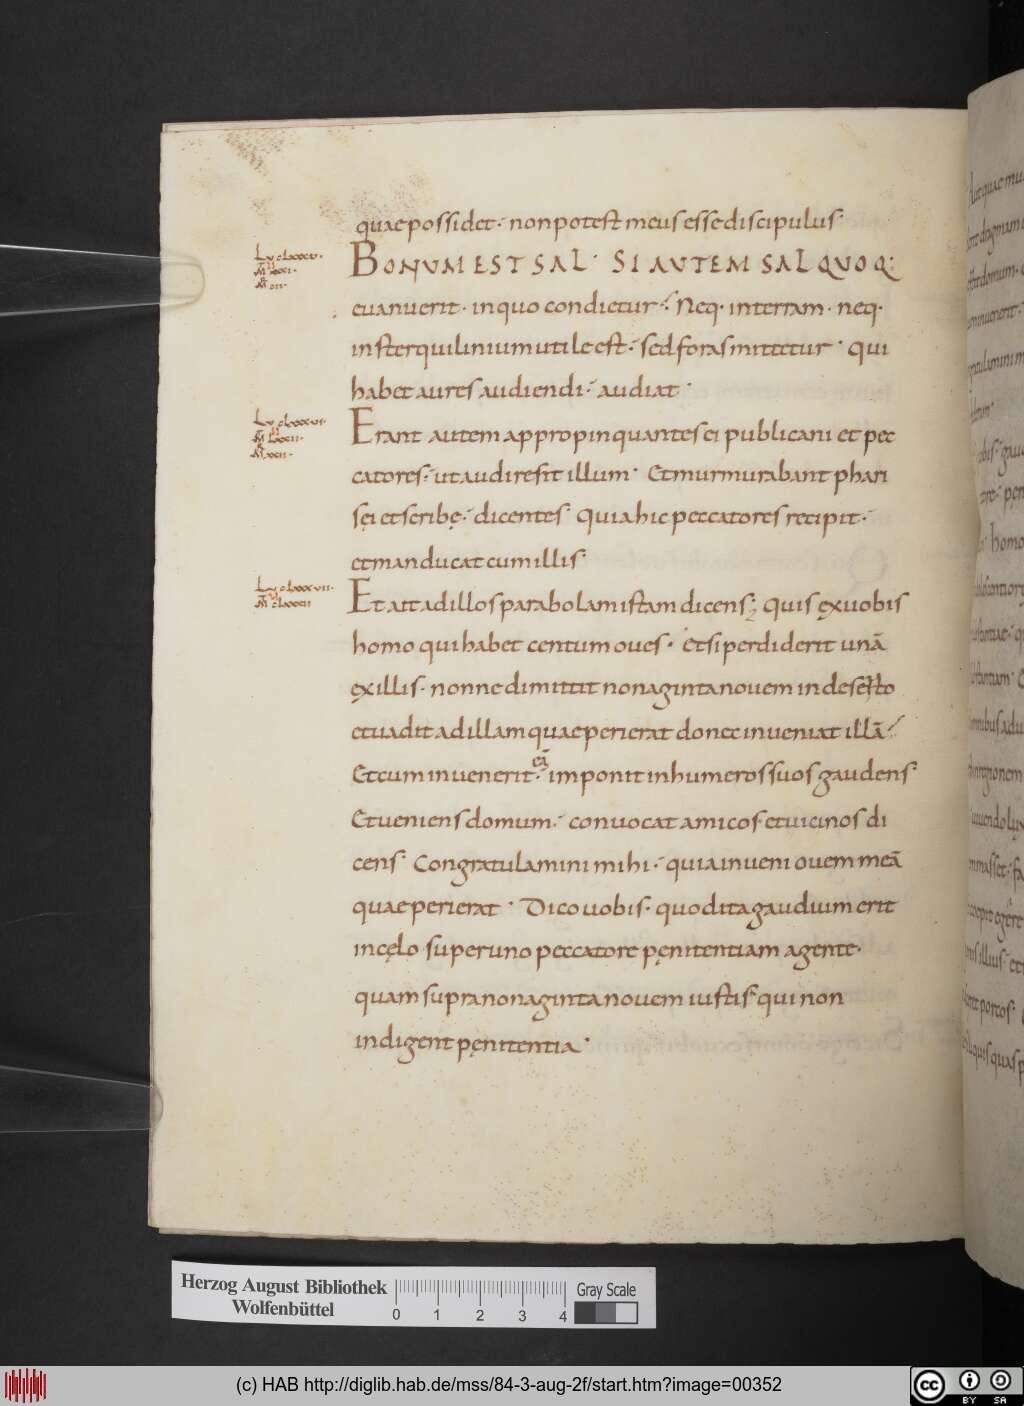 quae possidet · non potest meus esse discipulus ·
Lu clxxxv ·
BONUM EST SAL · SI AUTEM SAL QUOQ:
euanuerit · in quo condietur ·/ Neq · in terram · neq ·
in sterquilinium utile est ·/ sed foras mittetur · qui
habet aures audiendi ·/ audiat ·
Lu clxxxvi ·
M lxxii ·
M xxii ·
Erant autem appropinquantes ei publicani et pec
catores ·/ ut audirent illum · Et murmurabant phari
sęi et scribę ·/ dicentes · Quia hic peccatores recipit ·/
et manducat cum illis ·
Lu clxxxvii ·
M clxxxii
Et ait ad illos parabolam istam dicens ; Quis ex uobis
homo qui habet centum oues · et si perdiderit unā
ex illis · nonne dimittit nonaginta nouem in deserto
et uadit ad illam quae perierat donec inueniat illā ·/
Et cum inuenerit ·/ eā imponit in humeros suos gaudens ·
Et ueniens domum ·/ conuocat amicos · et uicinos di
cens · Congratulamini mihi ·/ quia inueni ouem meā
quae perierat · Dico uobis · quod ita gaudium erit
in cęlo super uno peccatore pęnitentiam agente ·
quam supra nonaginta nouem iustis · qui non
indigent pęnitentia ·
Herzog August Bibliothek
Wolfenbüttel
0 1 2 3 4
Gray Scale
(c) HAB http://diglib.hab.de/mss/84-3-aug-2f/start.htm?image=00352
cc BY SA